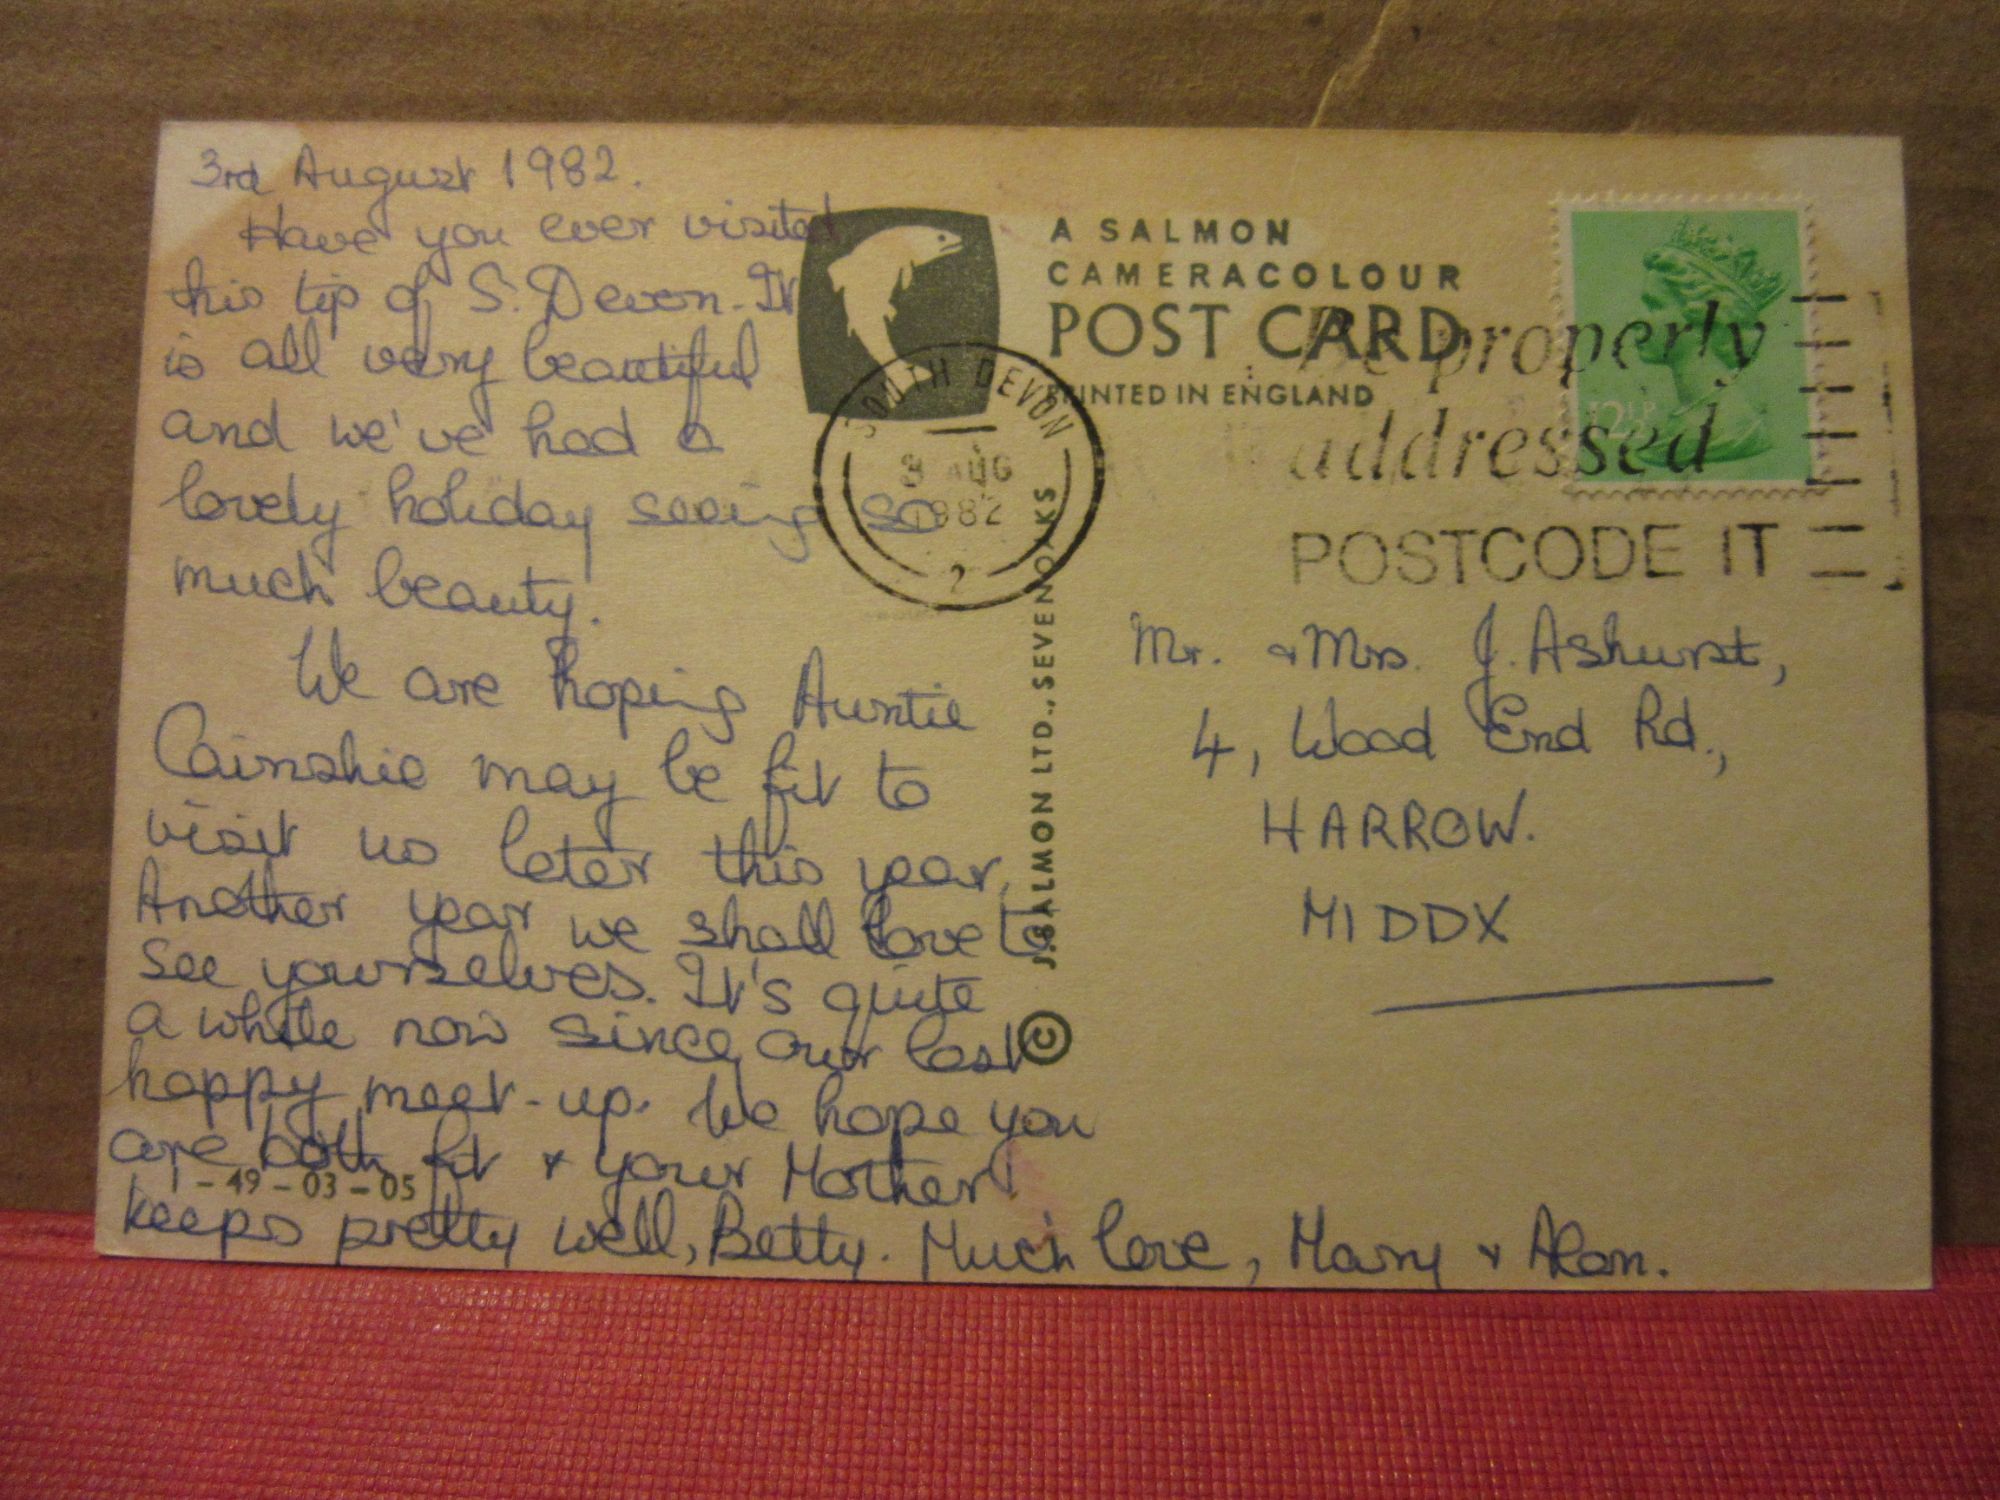 3rd August 1982.
Have you ever visited
this tip of S. Devon. It
is all very beautiful
and we've had a
lovely holiday seeing so
much beauty.
We are hoping Auntie
Cainshie may be fit to
visit us later this year.
Another year we shall love to
see yourselves. It's quite
a while now since our last
happy meet-up. We hope you
are both fit & your Mother
keeps pretty well, Betty. Much love, Mary & Alan.
1-49-03-05
A SALMON
CAMERACOLOUR
POST CARD
PRINTED IN ENGLAND
SOUTH DEVON
3 AUG
1982
2
Be properly
addressed
POSTCODE IT
12½P
© J. SALMON LTD., SEVENOAKS
Mr. & Mrs. J. Ashurst,
4, Wood End Rd.,
HARROW.
MIDDX